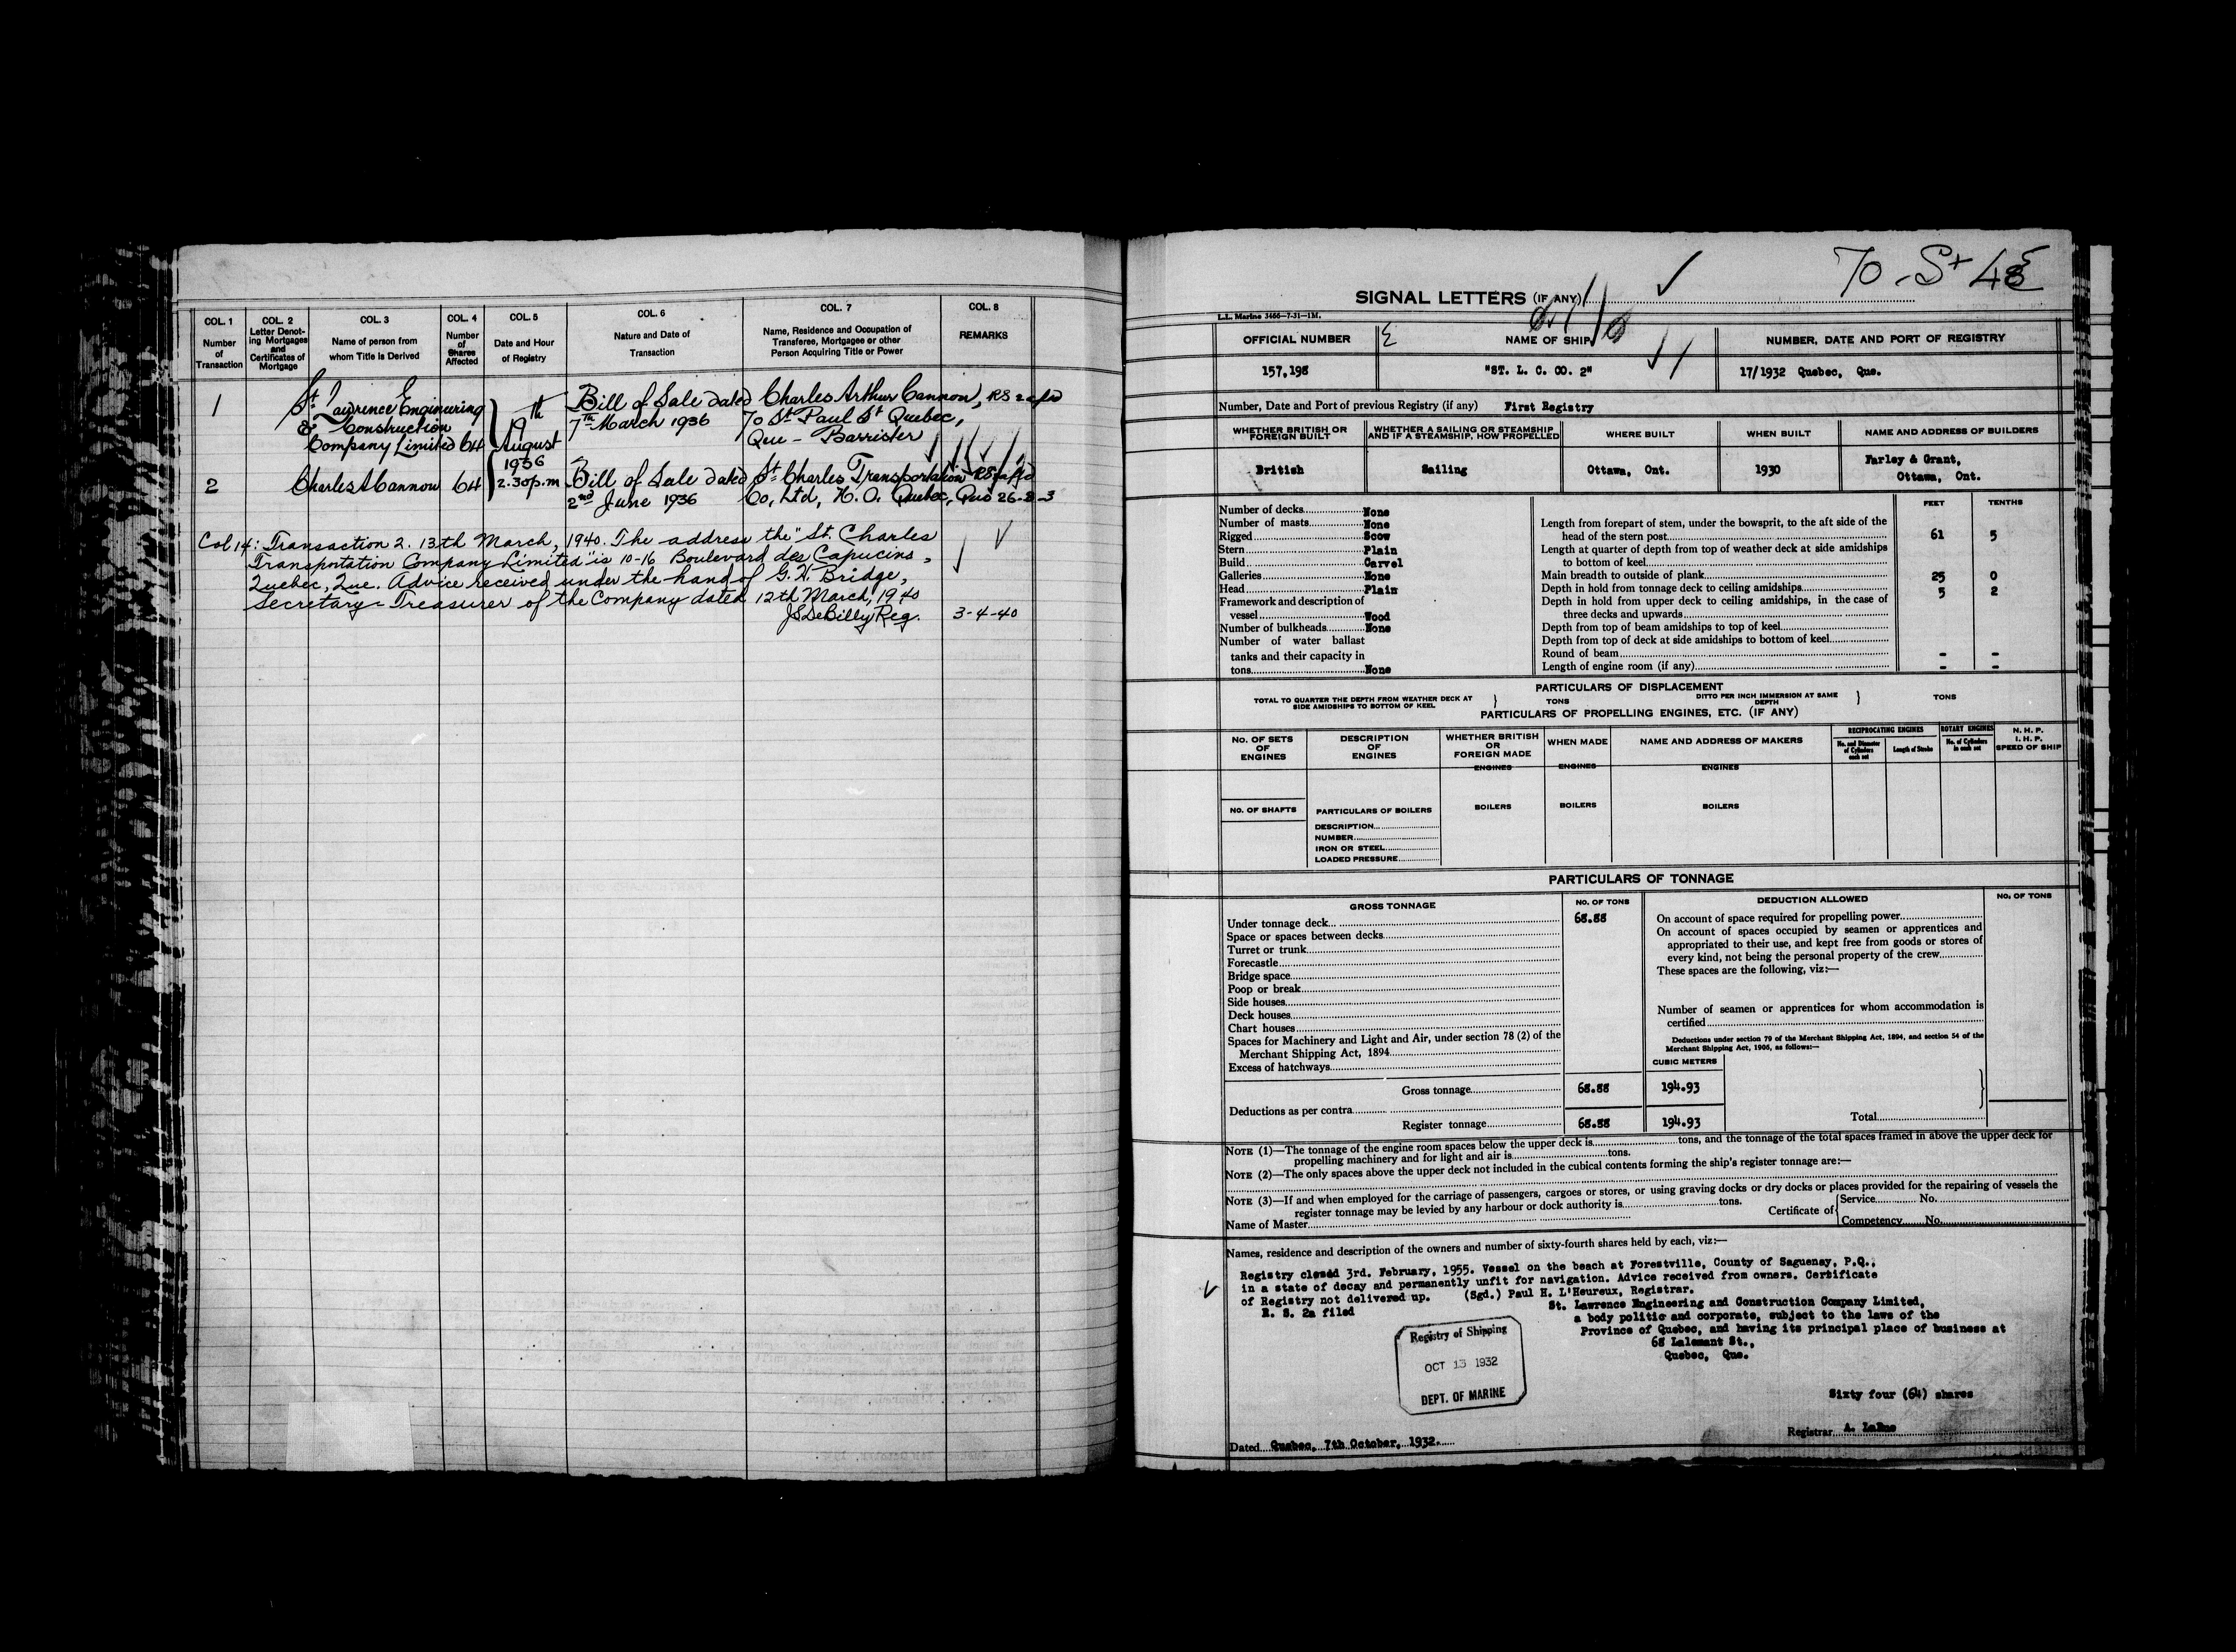 COL. 1 COL. 2 COL. 3 COL. 4 COL. 5 COL. 6 COL. 7 COL. 8
Number of Transaction
Letter Denoting Mortgages and Certificates of Mortgage
Name of person from whom Title is Derived
Number of Shares Affected
Date and Hour of Registry
Nature and Date of Transaction
Name, Residence and Occupation of Transferee, Mortgagee or other Person Acquiring Title or Power
REMARKS
1 St Lawrence Engineering & Construction Company Limited 64
August 1936 2.30 p.m
Bill of Sale dated 7th March 1936
Charles Arthur Cannon,
70 St Paul St Quebec,
Que - Barrister
2 Charles A Cannon 64
Bill of Sale dated 2nd June 1936
St Charles Transportation
Co, Ltd, H.O. Quebec, Que 26-8-3
Col 14: Transaction 2. 13th March, 1940. The address the "St. Charles
Transportation Company Limited" is 10-16 Boulevard des Capucins,
Quebec, Que. Advice received under the hand of G. H. Bridge,
Secretary-Treasurer of the Company dated 12th March, 1940
JSDeBilly Reg. 3-4-40
70 - St
SIGNAL LETTERS (IF ANY)
L.L. Marine 3466—7-31—1M.
OFFICIAL NUMBER NAME OF SHIP NUMBER, DATE AND PORT OF REGISTRY
157,198 "ST. L. C. CO. 2" 17/1932 Quebec, Que.
Number, Date and Port of previous Registry (if any) First Registry
WHETHER BRITISH OR FOREIGN BUILT
WHETHER A SAILING OR STEAMSHIP AND IF A STEAMSHIP, HOW PROPELLED
WHERE BUILT
WHEN BUILT
NAME AND ADDRESS OF BUILDERS
British Sailing Ottawa, Ont. 1930 Farley & Grant,
Ottawa, Ont.
FEET TENTHS
Number of decks None
Number of masts None
Rigged Scow
Stern Plain
Build Carvel
Galleries None
Head Plain
Framework and description of
vessel Wood
Number of bulkheads None
Number of water ballast
tanks and their capacity in
tons None
Length from forepart of stem, under the bowsprit, to the aft side of the
head of the stern post 61 5
Length at quarter of depth from top of weather deck at side amidships
to bottom of keel
Main breadth to outside of plank 25 0
Depth in hold from tonnage deck to ceiling amidships 5 2
Depth in hold from upper deck to ceiling amidships, in the case of
three decks and upwards
Depth from top of beam amidships to top of keel
Depth from top of deck at side amidships to bottom of keel
Round of beam - -
Length of engine room (if any) - -
PARTICULARS OF DISPLACEMENT
TOTAL TO QUARTER THE DEPTH FROM WEATHER DECK AT SIDE AMIDSHIPS TO BOTTOM OF KEEL } TONS DITTO PER INCH IMMERSION AT SAME DEPTH } TONS
PARTICULARS OF PROPELLING ENGINES, ETC. (IF ANY)
No. OF SETS OF ENGINES
DESCRIPTION OF ENGINES
WHETHER BRITISH OR FOREIGN MADE
WHEN MADE
NAME AND ADDRESS OF MAKERS
RECIPROCATING ENGINES
No. and Diameter of Cylinders each set
Length of Stroke
ROTARY ENGINES
No. of Cylinders in each set
N. H. P.
I. H. P.
SPEED OF SHIP
ENGINES ENGINES ENGINES
No. OF SHAFTS PARTICULARS OF BOILERS BOILERS BOILERS BOILERS
DESCRIPTION
NUMBER
IRON OR STEEL
LOADED PRESSURE
PARTICULARS OF TONNAGE
GROSS TONNAGE No. OF TONS DEDUCTION ALLOWED No. OF TONS
Under tonnage deck 68.88
Space or spaces between decks
Turret or trunk
Forecastle
Bridge space
Poop or break
Side houses
Deck houses
Chart houses
Spaces for Machinery and Light and Air, under section 78 (2) of the
Merchant Shipping Act, 1894
Excess of hatchways
On account of space required for propelling power
On account of spaces occupied by seamen or apprentices and
appropriated to their use, and kept free from goods or stores of
every kind, not being the personal property of the crew
These spaces are the following, viz:—
Number of seamen or apprentices for whom accommodation is
certified
Deductions under section 79 of the Merchant Shipping Act, 1894, and section 54 of the
Merchant Shipping Act, 1906, as follows:—
CUBIC METERS
Gross tonnage 68.88 194.93
Deductions as per contra
Register tonnage 68.88 194.93 Total
NOTE (1)—The tonnage of the engine room spaces below the upper deck is tons, and the tonnage of the total spaces framed in above the upper deck for
propelling machinery and for light and air is tons.
NOTE (2)—The only spaces above the upper deck not included in the cubical contents forming the ship's register tonnage are:—
NOTE (3)—If and when employed for the carriage of passengers, cargoes or stores, or using graving docks or dry docks or places provided for the repairing of vessels the
register tonnage may be levied by any harbour or dock authority is tons.
Name of Master
Certificate of { Service No.
Competency No.
Names, residence and description of the owners and number of sixty-fourth shares held by each, viz:—
Registry closed 3rd. February, 1955. Vessel on the beach at Forestville, County of Saguenay, P.Q.,
in a state of decay and permanently unfit for navigation. Advice received from owners. Certificate
of Registry not delivered up. (Sgd.) Paul H. L'Heureux, Registrar.
R. S. 2a filed
St. Lawrence Engineering and Construction Company Limited,
a body politic and corporate, subject to the laws of the
Province of Quebec, and having its principal place of business at
68 Lalemant St.,
Quebec, Que.
Registry of Shipping
OCT 13 1932
DEPT. OF MARINE
Sixty four (64) shares
Dated Quebec, 7th October, 1932.
Registrar A. LaRue